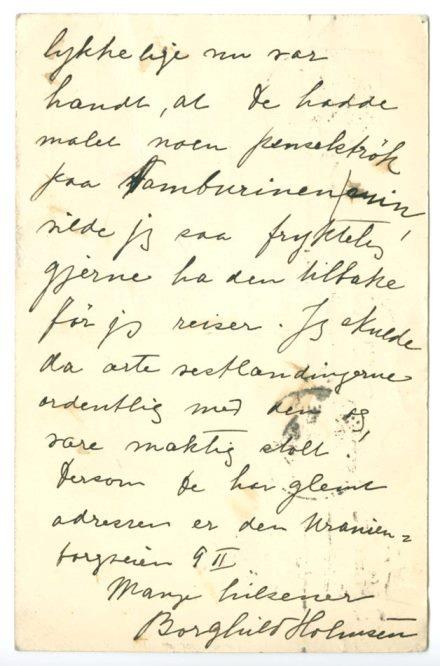 lykkelige nu var
hændt, at De hadde
malet noen penselströk
paa Tamburinen min,
vilde jeg saa frygtelig
gjerne ha den tilbake
för jeg reiser. Jeg skulde
da erte vestlandingerne
ordentlig med den og
være mæktig stolt!
Dersom De har glemt
adressen er den Uranien=
borgveien 9 II
Mange hilsener
Borghild Holmsen